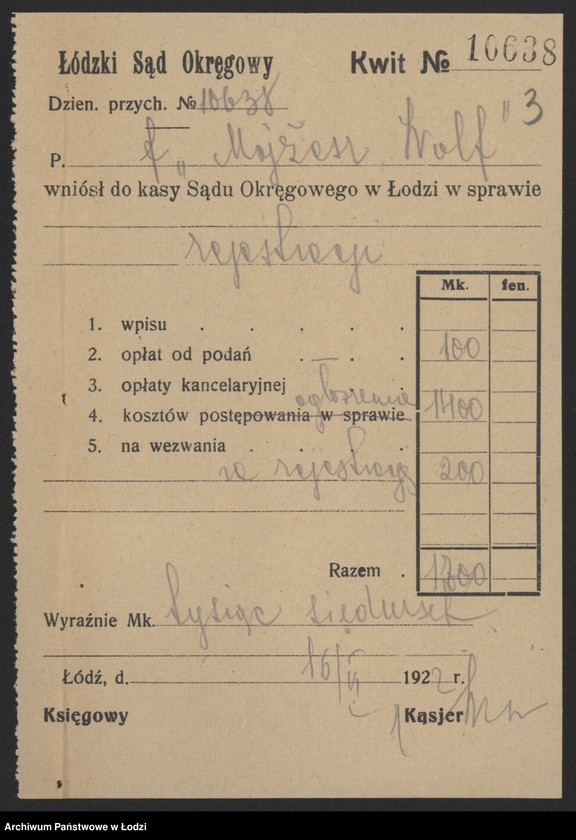 Łódzki Sąd Okręgowy Kwit № 10638
Dzien. przych. № 10638 3
P. f „Mojżesz Wolf"
wniósł do kasy Sądu Okręgowego w Łodzi w sprawie
rejestracji
Mk. fen.
1. wpisu . . . . .
2. opłat od podań . — . . 100
3. opłaty kancelaryjnej
ogłoszenie
4. kosztów postępowania w sprawie 1400
5. na wezwania . . . .
za rejestrację 200
Razem . 1700
Wyraźnie Mk. tysiąc siedmset
Łódź, d. 16/VI 1922 r.
Księgowy Kasjer
Archiwum Państwowe w Łodzi